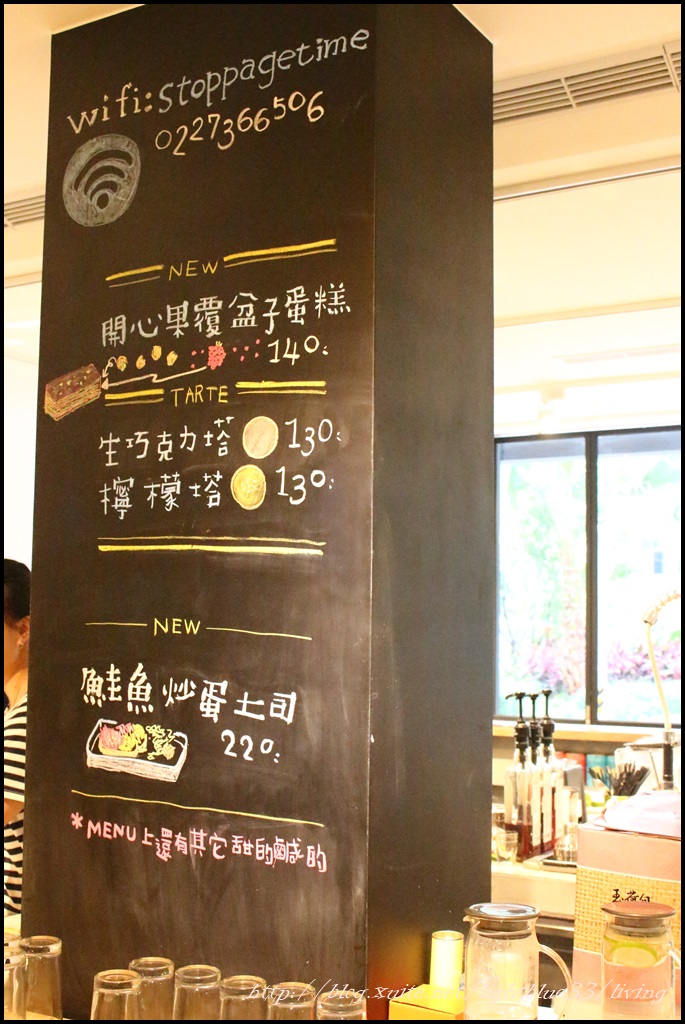 wifi: Stoppagetime
0227366506
NEW
開心果覆盆子蛋糕
140:
TARTE
生巧克力塔 130:
檸檬塔 130:
NEW
鮭魚炒蛋土司
220:
*MENU上還有其它甜的鹹的
玉荷包